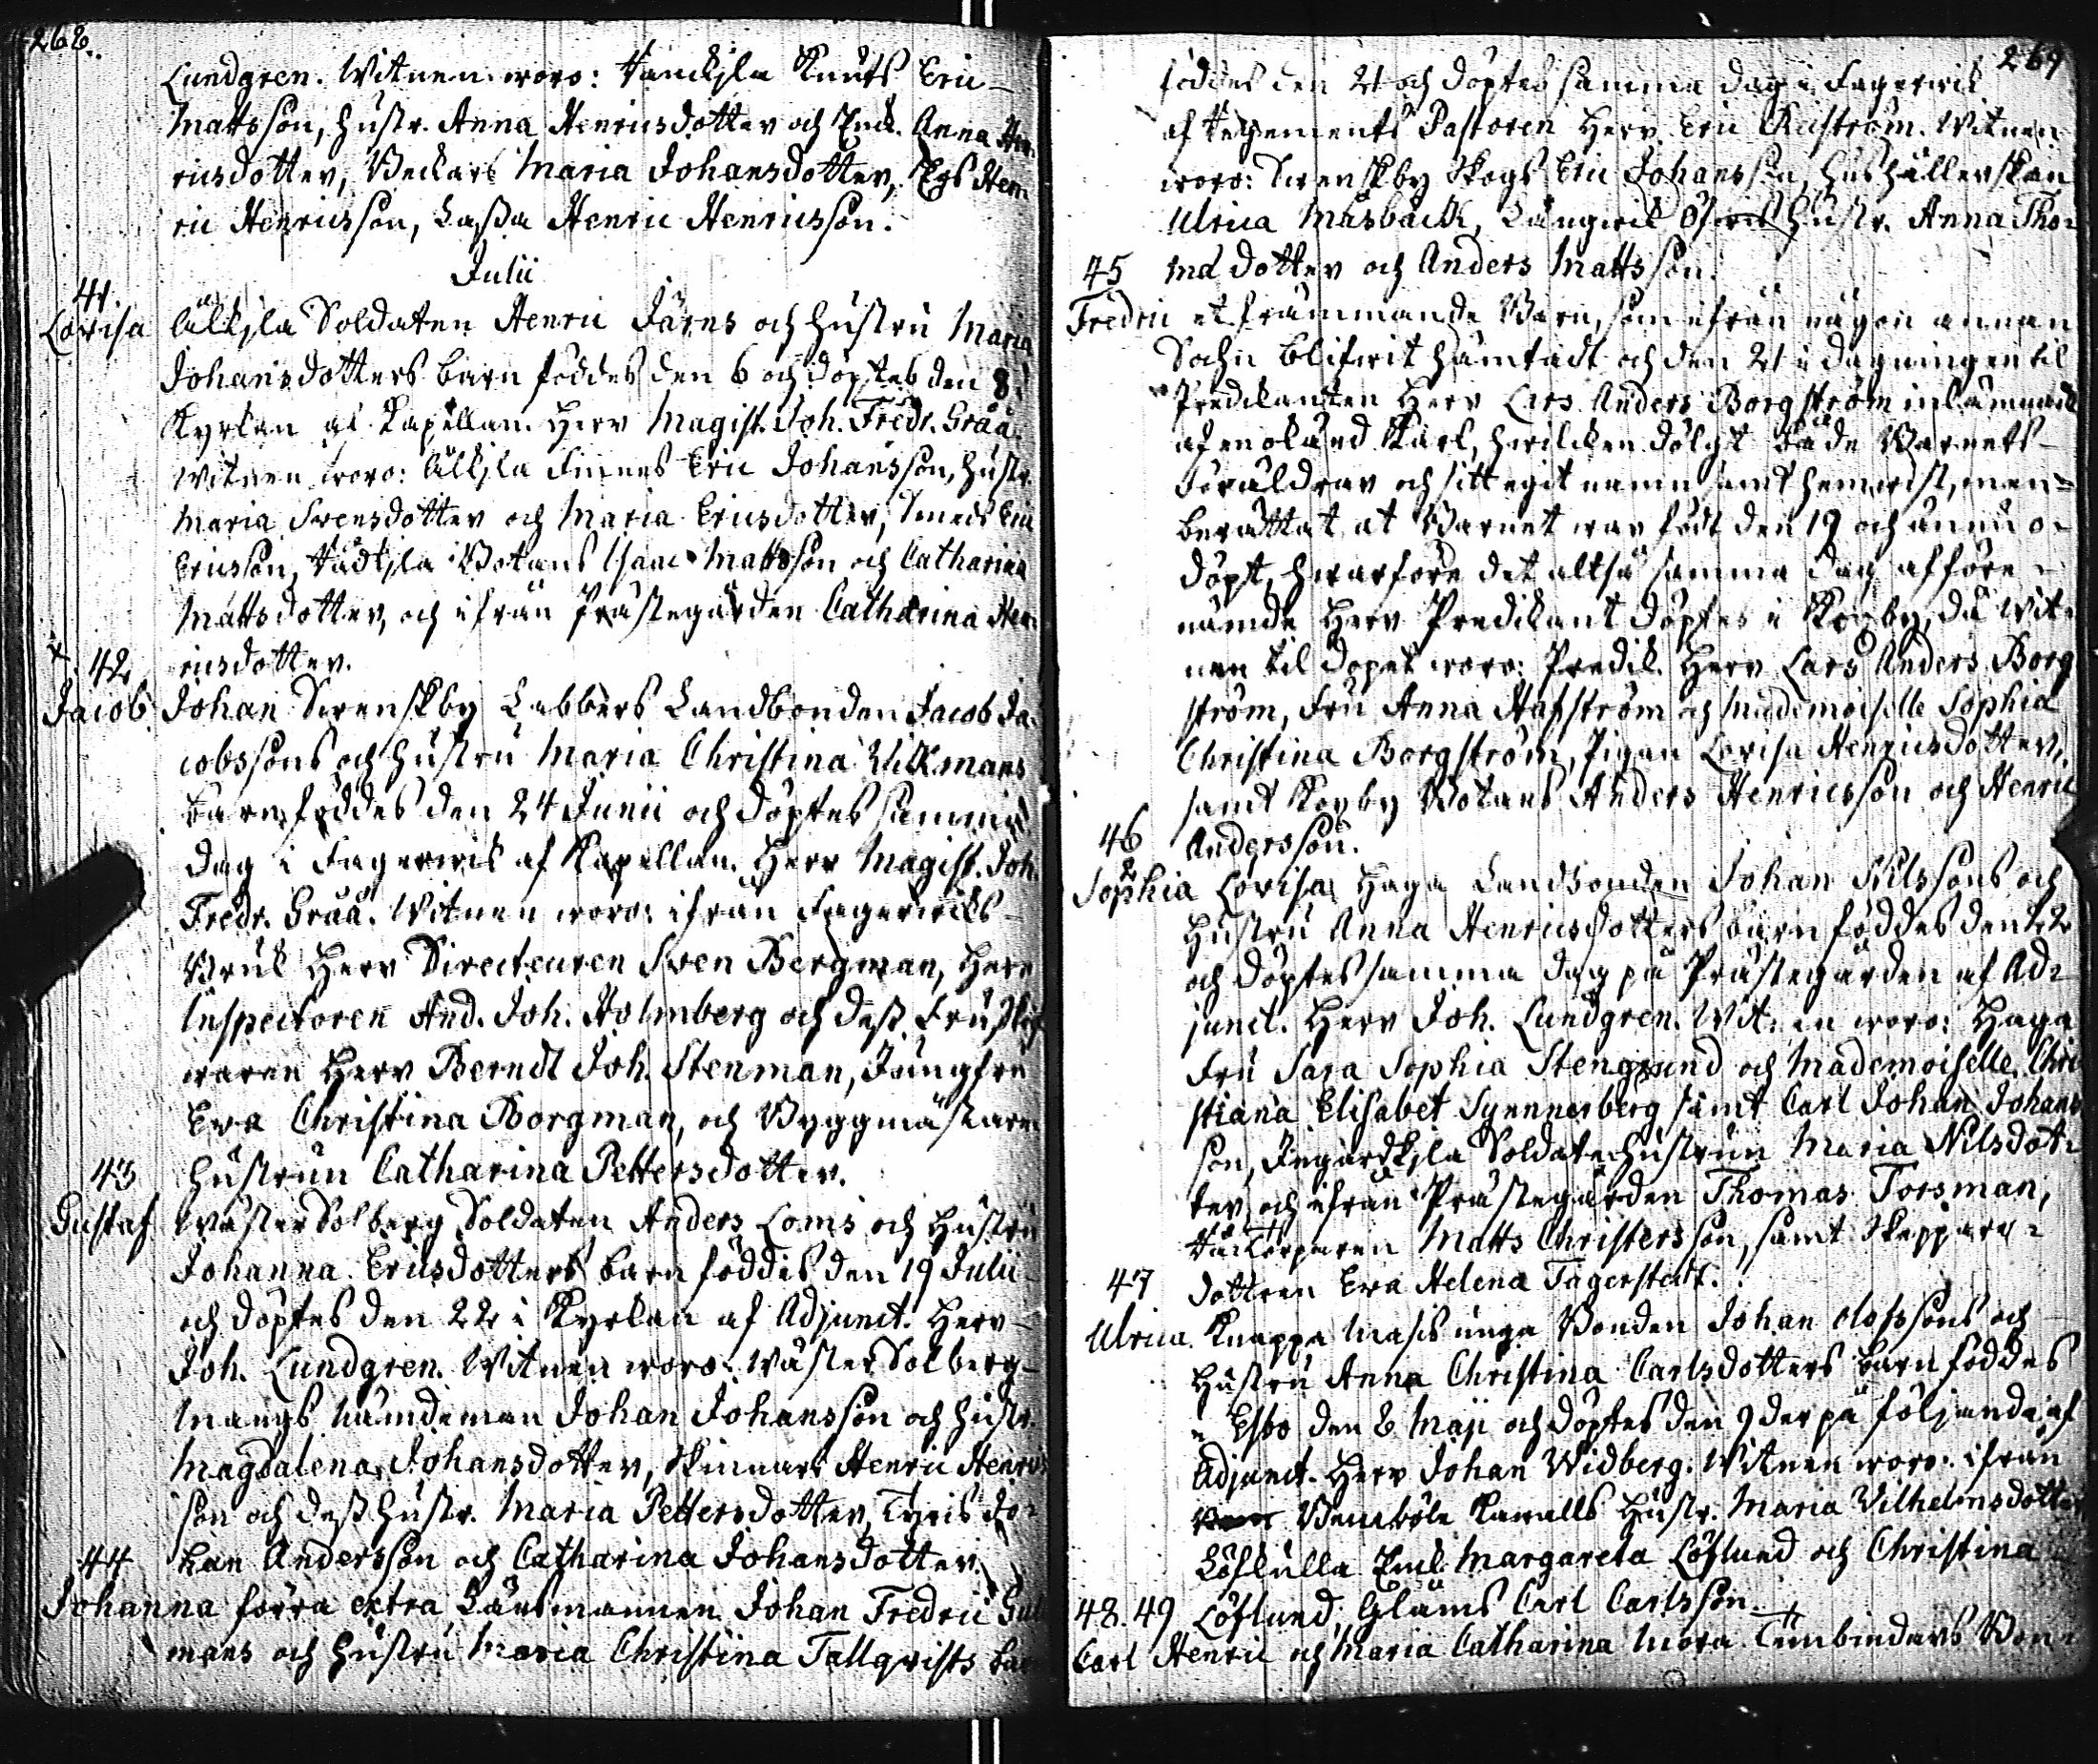 268.
Lundgren. Witnen woro: Knuts Eric
Mattsson, hustr. Anna Henricsdotter och Enk. Anna Hen-
ricsdotter, Maria Johansdotter, Hen-
ric Henricsson, Lassa Henric Henricsson.
Julii
41.
Lovisa Soldaten Henric Järns och hustru Maria
Johansdotters barn föddes den 6 och döptes den 8 i
Kyrkan af Kapellan. Herr Magist. Joh. Fredr. Gråå.
Witnen woro: Finnes Eric Johansson, hustr.
Maria Svensdotter och Maria Ericsdotter, Eric
Ericsson, Botans Isaac Mattsson och Catharina
Mattsdotter, och ifrån Prästegården Catharina Hen-
ricsdotter.
42
Jacob Johan Svenskby Labbers Landbonden Jacob Ja-
cobssons och hustru Maria Christina Wikmans
barn föddes den 24 Junii och döptes samma
dag i Fagerwik af Kapellan. Herr Magist. Joh.
Fredr. Gråå. Witnen woro: ifrån Fagerwiks
Bruk Herr Directeuren Sven Bergman, Herr
Inspectoren And. Joh. Holmberg och dess Fru,
Herr Berndt Joh. Stenman, Jungfru
Eva Christina Borgman, och Byggmästare
hustrun Catharina Pettersdotter.
43
Gustaf Wäster Solberg Soldaten Anders Loms och hustru
Johanna Ericsdotters barn föddes den 19 Julii
och döptes den 22 i Kyrkan af Adjunct. Herr
Joh. Lundgren. Witnen woro: Wäster Solberg
Mangs Nämndeman Johan Johansson och hustr.
Magdalena Johansdotter, Skinnars Henric Henrics
son och dess hustr. Maria Pettersdotter, Jo-
han Andersson och Catharina Johansdotter.
44
Johanna förra extra Länsmannen Johan Fredric
mans och hustru Maria Christina Tallqvists barn
269
föddes den 21 och döptes samma dag i Fagerwik
af Regements Pastoren Herr Eric Witnen
woro: Svenskby Skogs Eric Johansson, hushållerskan
Ulrica Masbäck, Långwik hustr. Anna Tho-
mæ dotter och Anders Mattsson.
45
Fredric et främmande Barn, som ifrån någon annan
Sochn blifwit hämtadt och den 21 i dagningen til
Predikanten Herr Lars Anders Borgström inlämnadt
af en okänd Karl, hwilken dölgt både Barnets
Föräldrar och sitt egit namn samt hemwist, men
berättat at Barnet war födt den 19 och ännu o-
döpt, hwarföre det altså samma dag af före-
nämde Herr Predikant döptes i Kopby, då Wit-
nen til dopet woro: Predik. Herr Lars Anders Borg
ström, Fru Anna Hafström och Mademoiselle Sophia
Christina Borgström, Pigan Lovisa Henricsdotter,
samt Kopby Botans Anders Henricsson och Henric
Andersson.
46
Sophia Lovisa Haga Landbonden Johan Nilssons och
Hustru Anna Henricsdotters barn föddes den 22
och döptes samma dag på Prästegården af Ad-
junct. Herr Joh. Lundgren. Witnen woro: Haga
Fru Sara Sophia Stengrund och Mademoiselle Chri
stiana Elisabet Synnerberg samt Carl Johan Johans
son, Soldatehustrun Maria Nilsdot-
ter och ifrån Prästegården Thomas Torsman,
Matts Christersson, samt Skeppare-
dottren Eva Helena Fagerstedt.
47
Ulrica. Knappa unga Bonden Johan Olofssons och
Hustru Anna Christina Carlsdotters barn föddes
i Esbo den 8 Maji och döptes den 9 der på följande af
Adjunct. Herr Johan Widberg. Witnen woro: ifrån
Hustr. Maria Wilhelmsdotter
Löfkulla Enk. Margareta Löflund och Christina
Löflund, Glams Carl Carlsson.
48. 49
Carl Henric och Maria Catharina Mora Tunbindars Bon-